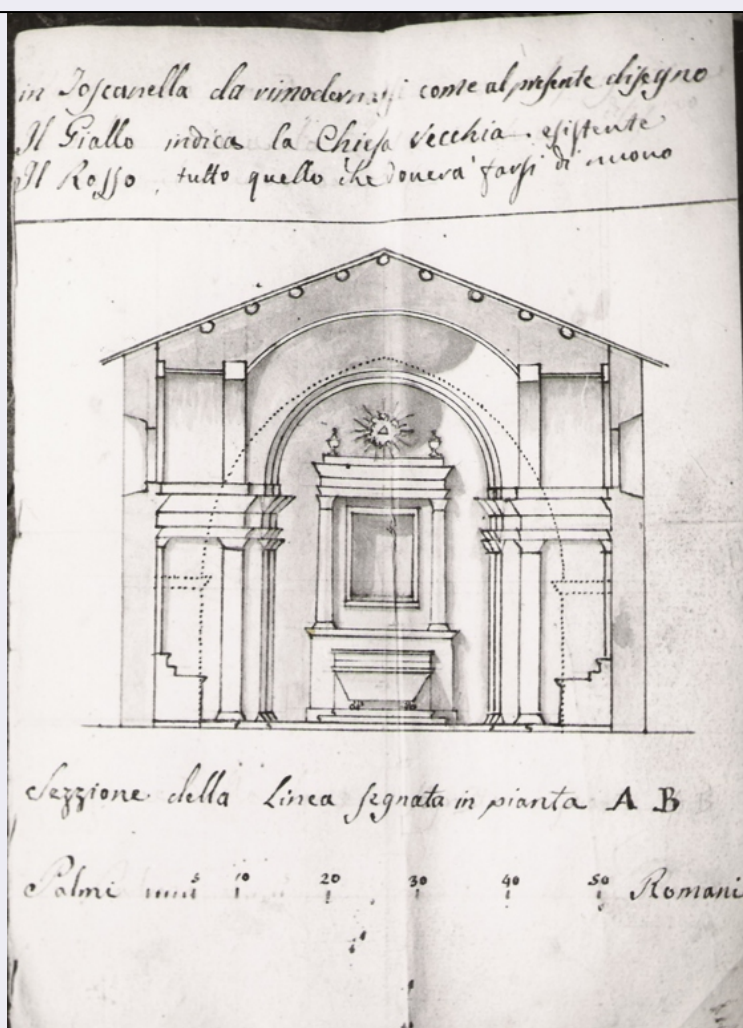 in Toscanella da rimodernarsi come al presente disegno
Il Giallo indica la Chiesa Vecchia esistente
Il Rosso, tutto quello che doverà farsi di nuovo
Sezzione della Linea segnata in pianta A B
Palmi 5 10 20 30 40 50 Romani